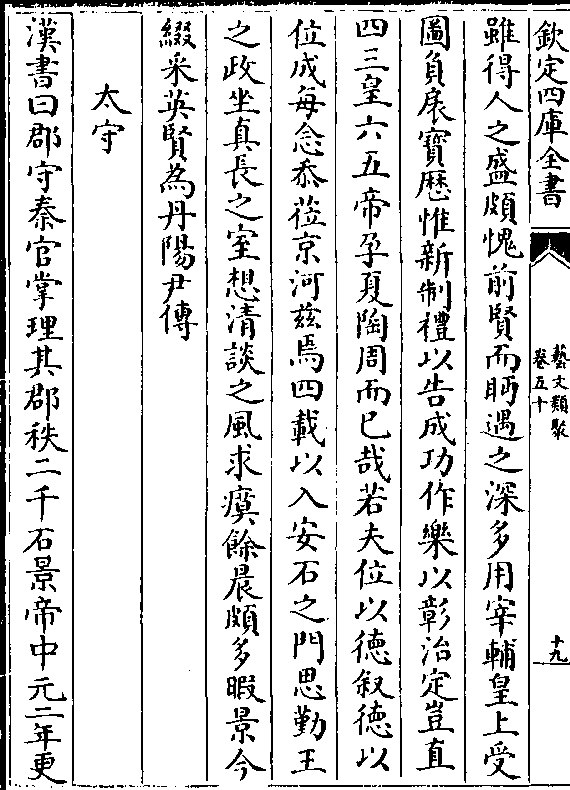 欽定四庫全書
藝文類聚
卷五十
十九
雖得人之盛頗愧前賢而眄遇之深多用宰輔皇上受
圖負扆寶歷惟新制禮以告成功作樂以彰治定豈直
四三皇六五帝孕夏陶周而已哉若夫位以德叙德以
位成每念忝蒞京河兹焉四載以入安石之門思勤王
之政坐真長之室想清談之風求瘼餘晨頗多暇景今
綴采英賢為丹陽尹傳
太守
漢書曰郡守秦官掌理其郡秩二千石景帝中元二年更